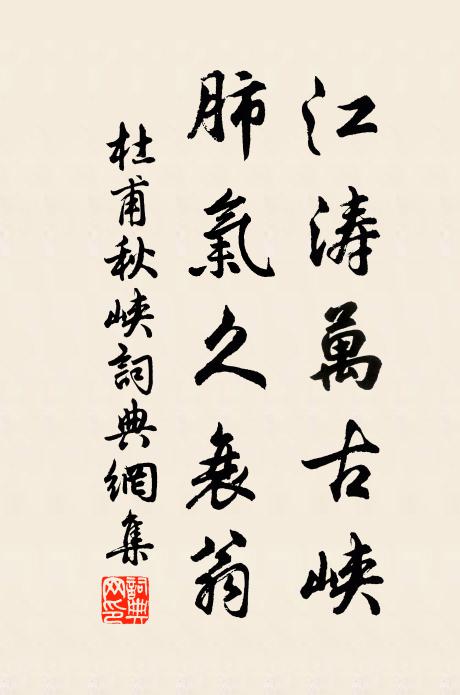 江涛萬古峡
肺氣久衰翁
杜甫秋峡詞典網集
詞典网印